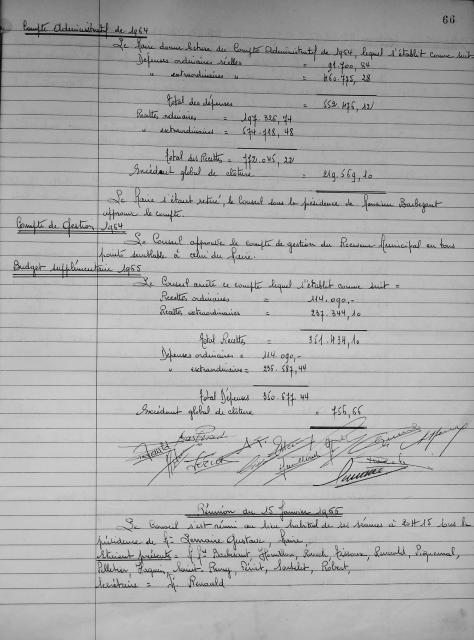 66
Compte Administratif de 1964
Le Maire donne lecture du Compte Administratif de 1964, lequel s'établit comme suit
Dépenses ordinaires réelles = 91.700, 84
" extraordinaires " = 460.775, 28
Total des dépenses = 552.476, 12
Recettes ordinaires = 197.326, 74
" extraordinaires = 574.718, 48
Total des Recettes = 772.045, 22
Excédent global de clôture = 219.569, 10
Le Maire s'étant retiré, le Conseil sous la présidence de
approuve le compte.
Compte de Gestion 1964
Le Conseil approuve le compte de gestion du Receveur Municipal en tous
points semblable à celui du Maire.
Budget supplémentaire 1965
Le Conseil arrête ce compte lequel s'établit comme suit =
Recettes ordinaires = 114.090,-
Recettes extraordinaires = 237.344,10
Total Recettes = 351.434,10
Dépenses ordinaires = 114.090,-
" extraordinaires = 236.587,44
Total Dépenses = 350.677,44
Excédent global de clôture " 756,66
Réunion du 15 Janvier 1966
Le Conseil s'est réuni au lieu habituel de ses séances à 20H15 sous la
présidence de Mr Lorraine Gustave, Maire,
Etaient présents =
Pelletier, Saint Remy, Robert,
Secrétaire = Mr Renauld